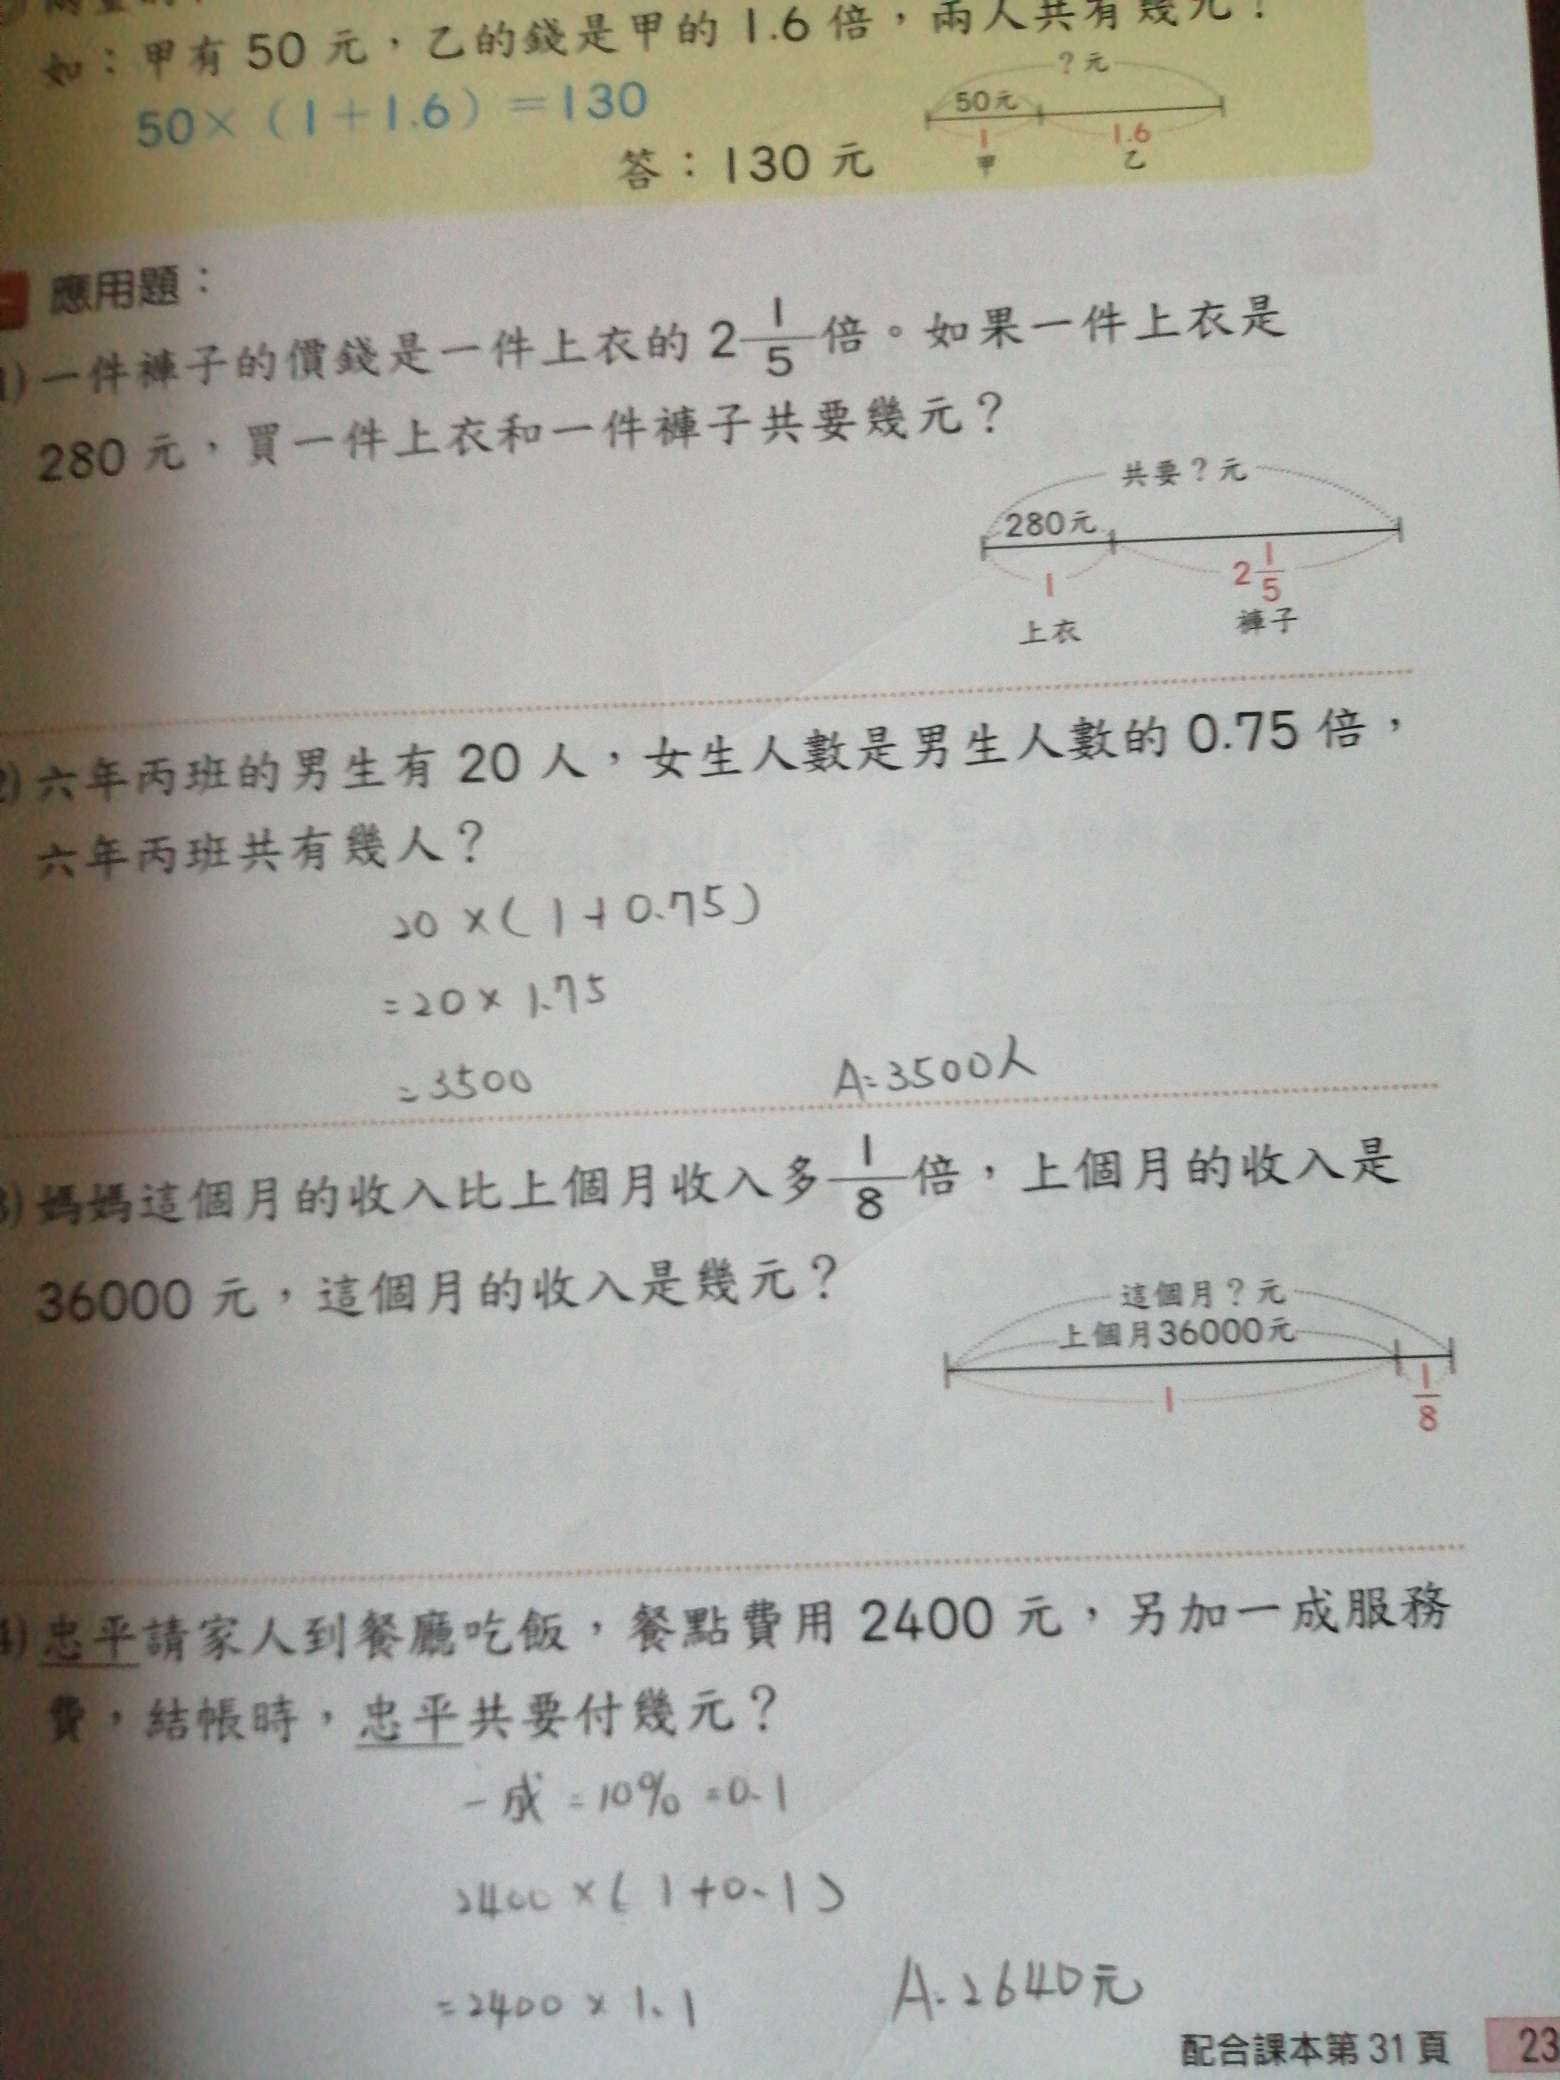 如：甲有 50 元，乙的錢是甲的 1.6 倍，兩人共有幾元？
50×（1＋1.6）＝130
答：130 元
？元
50元
1
1.6
甲
乙
應用題：
一件褲子的價錢是一件上衣的 2 1/5 倍。如果一件上衣是
280 元，買一件上衣和一件褲子共要幾元？
共要？元
280元
1
2 1/5
上衣
褲子
六年丙班的男生有 20 人，女生人數是男生人數的 0.75 倍，
六年丙班共有幾人？
20×(1+0.75)
=20×1.75
=3500
A:3500人
媽媽這個月的收入比上個月收入多 1/8 倍，上個月的收入是
36000 元，這個月的收入是幾元？
這個月？元
上個月36000元
1
1/8
4) 忠平請家人到餐廳吃飯，餐點費用 2400 元，另加一成服務
費，結帳時，忠平共要付幾元？
一成=10%=0.1
2400×(1+0.1)
=2400×1.1
A:2640元
配合課本第 31 頁
23